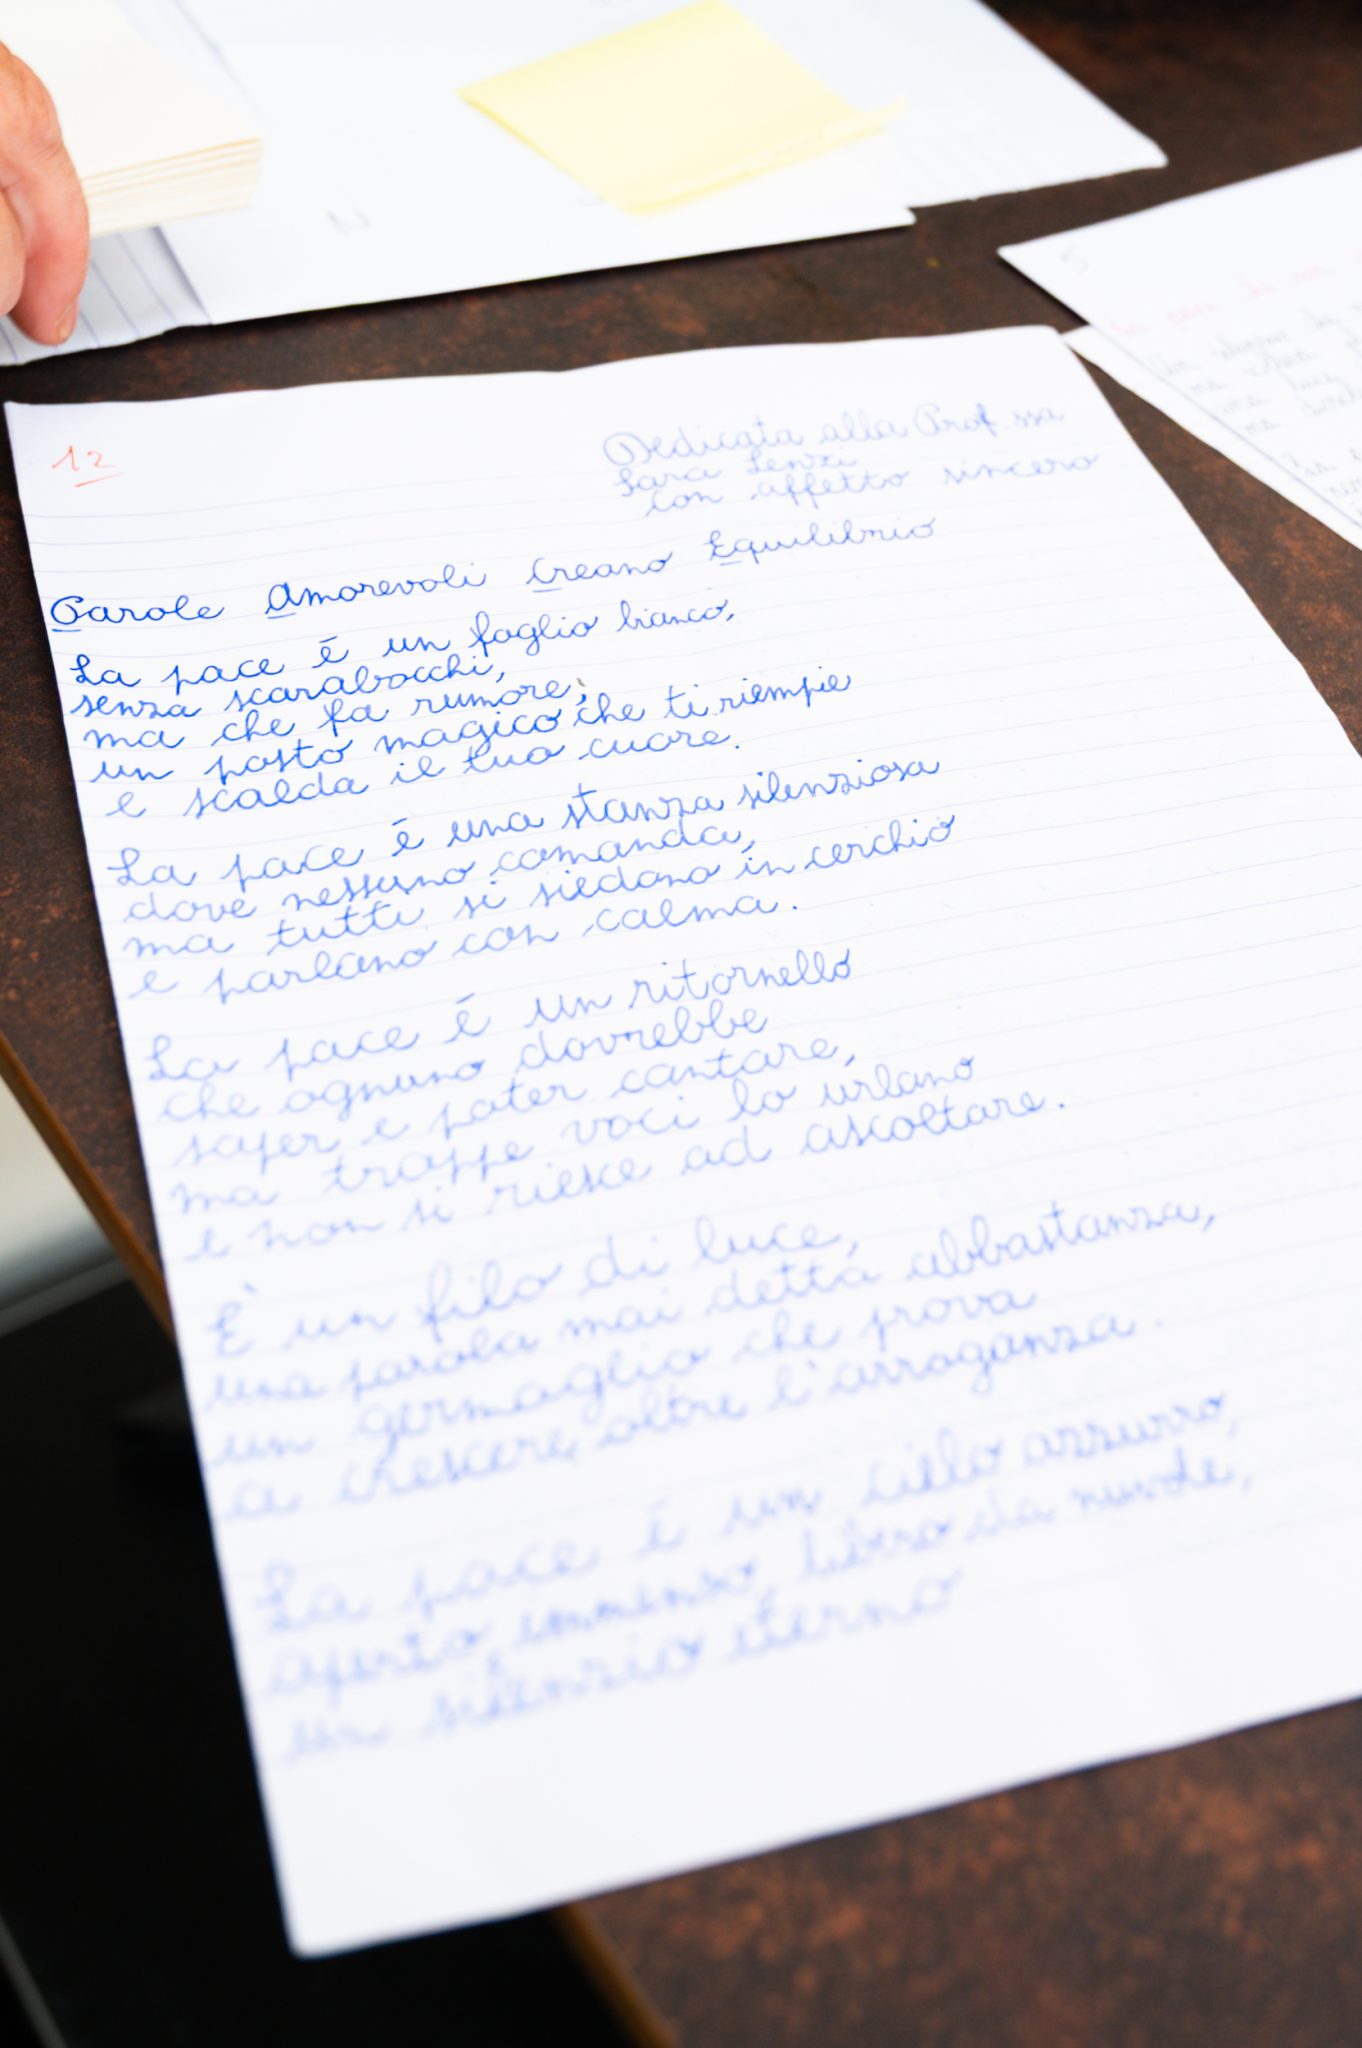 12
Dedicata alla Prof.ssa
Sara Lenzi
con affetto sincero
Parole Amorevoli Creano Equilibrio
La pace è un foglio bianco,
senza scarabocchi,
ma che fa rumore;
un posto magico che ti riempie
e scalda il tuo cuore.
La pace è una stanza silenziosa
dove nessuno comanda,
ma tutti si siedono in cerchio
e parlano con calma.
La pace è un ritornello
che ognuno dovrebbe
saper e poter cantare,
ma troppe voci lo urlano
e non si riesce ad ascoltare.
È un filo di luce,
una parola mai detta abbastanza,
un germoglio che prova
a crescere oltre l'arroganza.
La pace è un cielo azzurro,
aperto, immenso, libero da nuvole,
un silenzio eterno
5